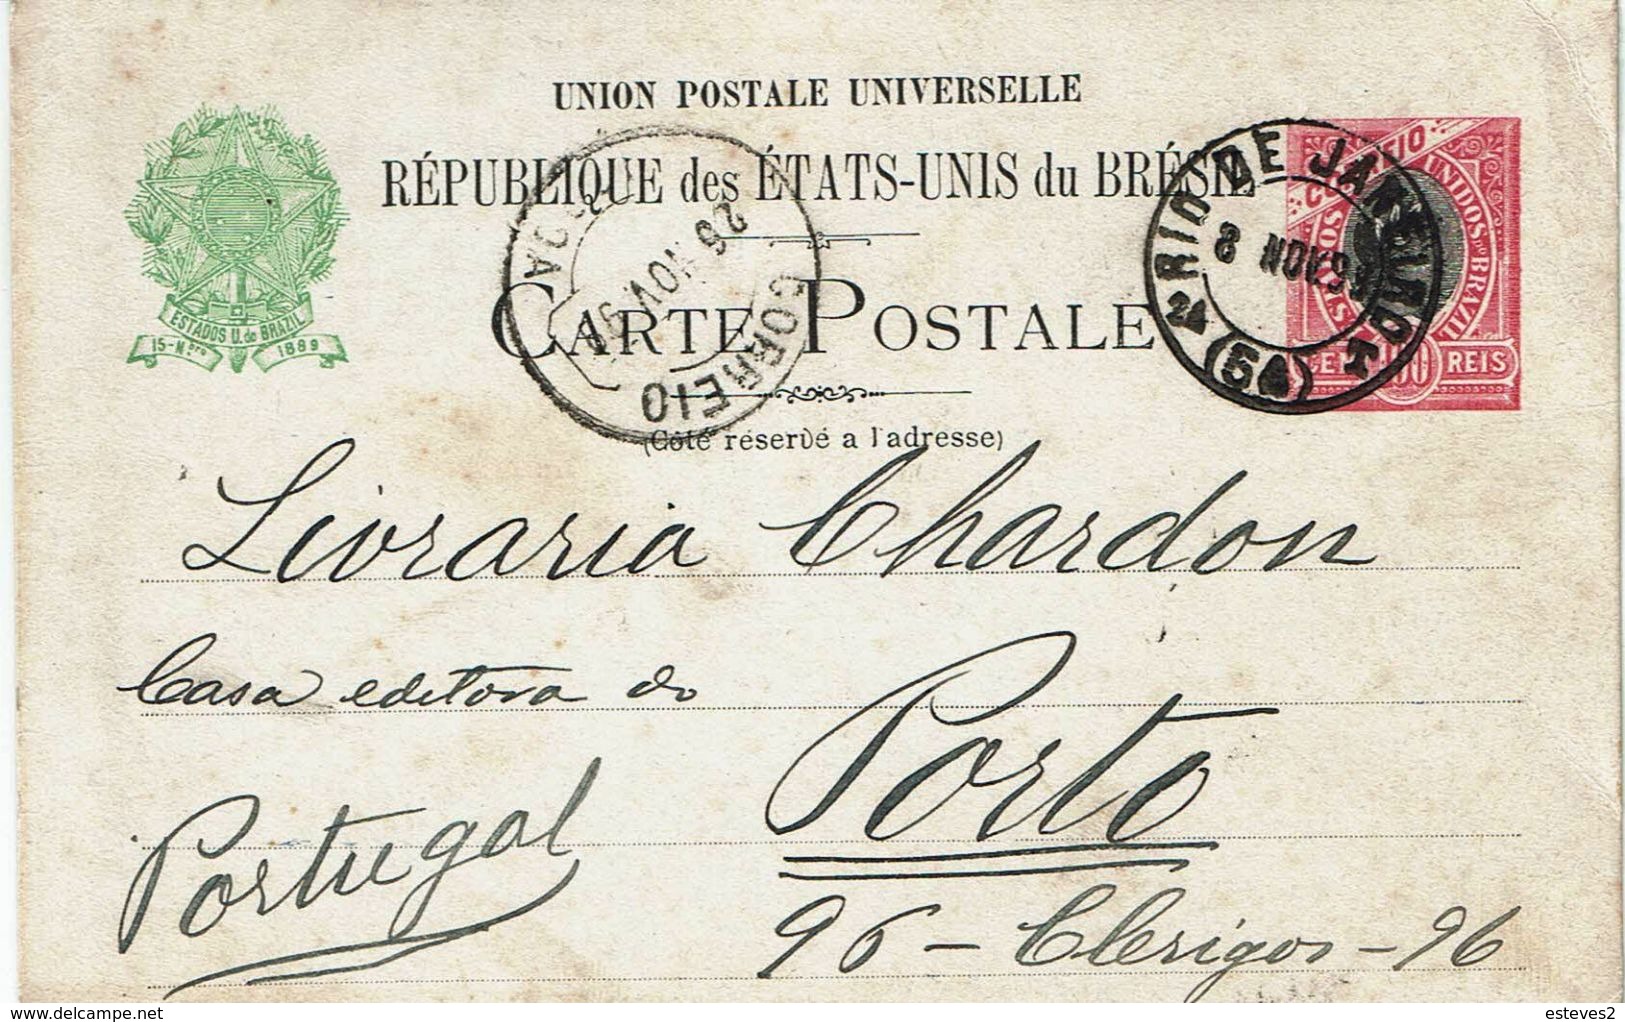 UNION POSTALE UNIVERSELLE
RÉPUBLIQUE des ÉTATS-UNIS du BRÉSIL
CARTE POSTALE
(Côté réservé a l'adresse)
ESTADOS U. do BRAZIL
15-N.bro 1889
CORREIO
26 NOV
RIO DE JANEIRO
8 NOV 99
2ª (5ª) T
ESTADOS UNIDOS DO BRAZIL
100 REIS
Livraria Chardon
Casa editora do
Porto
Portugal
96 - Clerigos - 96
delcampe.net
esteves2